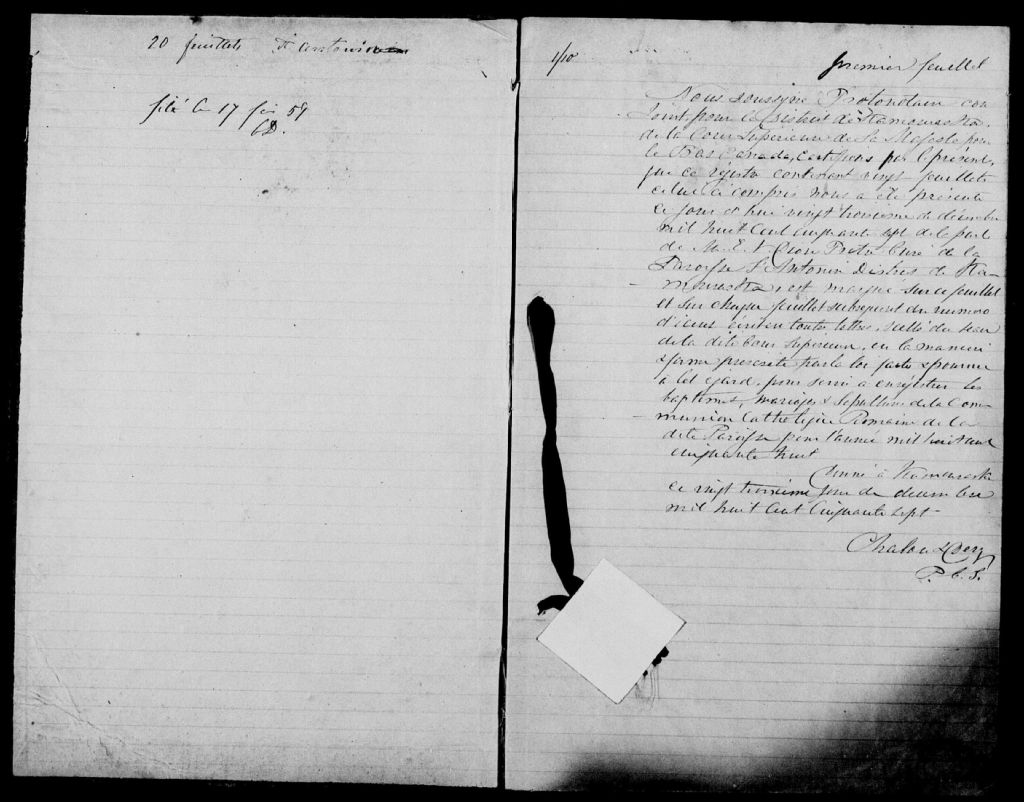 20 feuillets St Antonin
filé le 17 fév 59
1/10
premier feuillet
Nous soussigné Protonotaire con
joint, pour le District de Kamouraska,
de la Cour Supérieure de Sa Majesté pour
le Bas Canada, Certifions par le présent,
que ce régistre contenant vingt feuillets
celui ci compris nous a été présenté
ce jour d'hui vingt troisieme de décembre
mil huit Cent cinquante sept de la part
de M. Ptre Curé de la
Paroisse St Antonin District de Ka-
mouraska, est marqué sur ce feuillet
et sur chaque feuillet subsequent du numero
d'iceux écrit en toutes lettres, scellé du sceau
de la dite Cour Superieure, en la maniere
& forme prescrite par la loi faite & pourvue
a cet égard, pour servir a enrégistrer les
baptêmes, mariages & Sepultures de la Com-
munion Catholique Romaine de la
dite Paroisse pour l'année mil huit cent
cinquante huit
Donné à Kamouraska
ce vingt troisieme jour de decembre
mil huit cent Cinquante sept -
P. C. S.